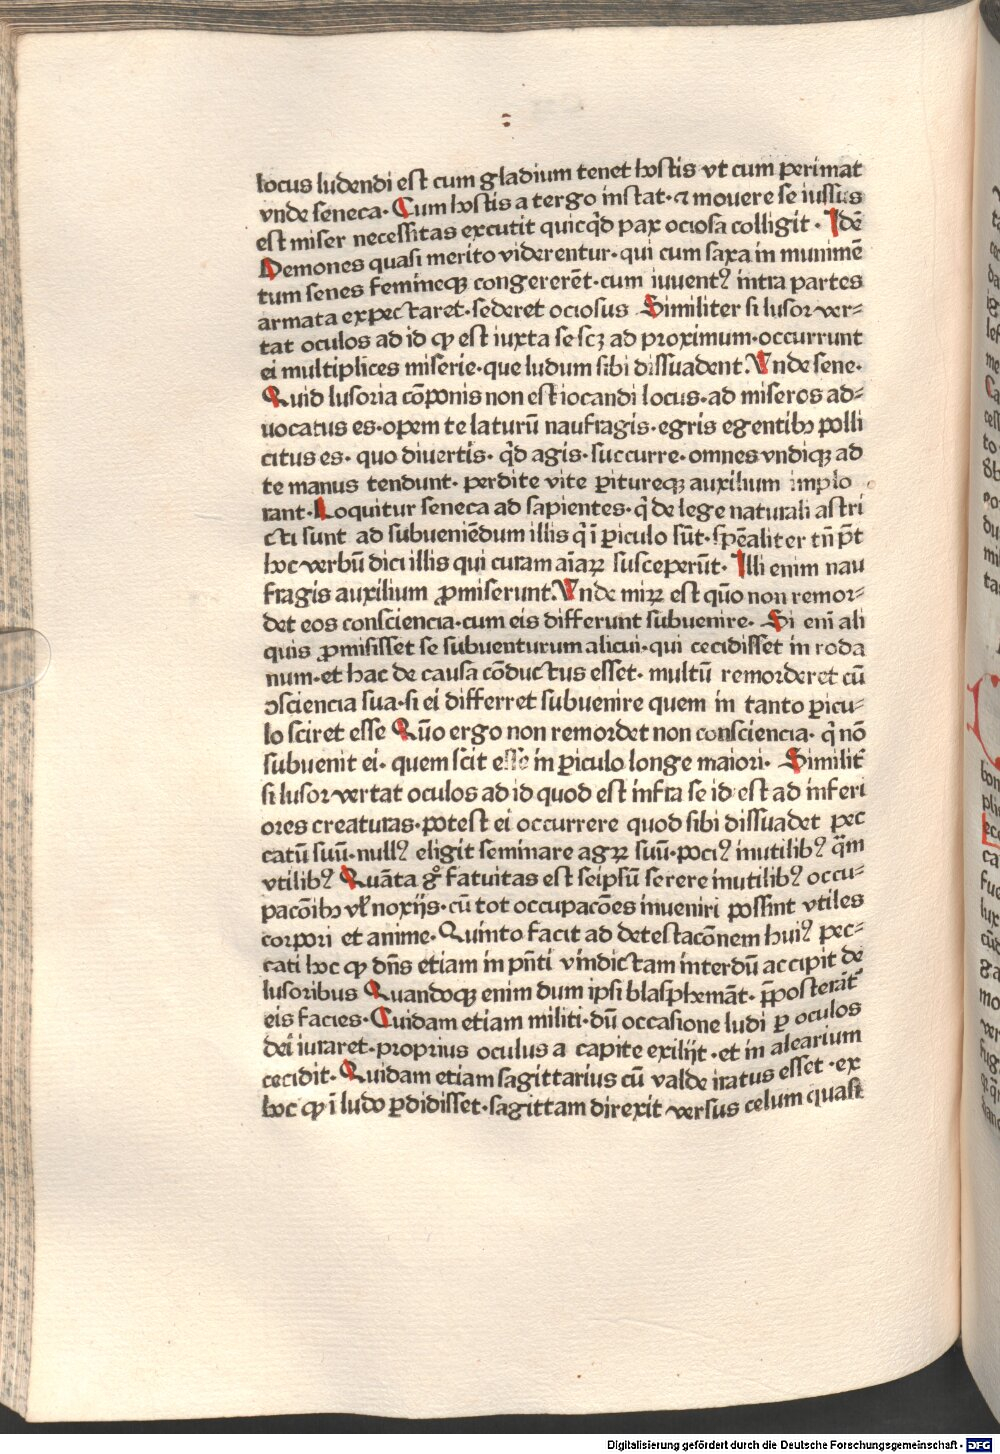 locus ludendi est cum gladium tenet hostis vt cum perimat
vnde seneca· Cum hostis a tergo instat· ⁊ mouere se iussus
est miser necessitas excutit quicq̄d pax ociosa colligit· Idē
Demones quasi merito viderentur· qui cum saxa in munimē
tum senes femineqꝫ congererēt· cum iuuentꝰ intra partes
armata expectaret· sederet ociosus Similiter si lusor ver⸗
tat oculos ad id qꝫ est iuxta se scꝫ ad proximum· occurrunt
ei multiplices miserie· que ludum sibi dissuadent. Vnde sene·
Quid lusoria cōponis non est iocandi locus· ad miseros ad⸗
uocatus es· opem te laturū naufragis· egris egentibꝫ polli
citus es· quo diuertis· q̄d agis· succurre· omnes vndiqꝫ ad
te manus tendunt· perdite vite ꝑitureqꝫ auxilium implo
rant· Loquitur seneca ad sapientes· q̄ de lege naturali astri
cti sunt ad subueniēdum illis q̄ ī ꝑiculo sūt· spēaliter tn̄ pn̄t
hoc verbū dici illis qui curam aīaꝝ susceperūt· Illi enim nau
fragis auxilium ꝓmiserunt. Vnde miꝝ est quō non remor⸗
det eos consciencia· cum eis differunt subuenire· Si eni ali
quis ꝓmisisset se subuenturum alicui· qui cecidisset in roda
num· et hac de causa cōductus esset· multū remorderet cū
ꝯsciencia sua· si ei differret subuenire quem in tanto ꝑicu⸗
lo sciret esse Quō ergo non remordet non consciencia· q̄ nō
subuenit ei· quem scit esse in ꝑiculo longe maiori· Similit̄
si lusor vertat oculos ad id quod est infra se id est ad inferi
ores creaturas· potest ei occurrere quod sibi dissuadet pec
catū suū· nullꝰ eligit seminare agꝝ suū· pociꝰ inutilibꝰ q̄m
vtilibꝰ Quāta gͦ fatuitas est seipsū serere inutilibꝰ occu⸗
pacōibꝫ vl̄ noxijs· cū tot occupacōes inueniri possint vtiles
corpori et anime· Quinto facit ad detestacōnem huiꝰ pec⸗
cati hoc qꝫ dn̄s etiam in pn̄ti vindictam interdū accipit de
lusoribus Quandoqꝫ enim dum ipsi blasphemāt· p̄posterāt̄
eis facies· Cuidam etiam militi· dū occasione ludi ꝑ oculos
dei iuraret· proprius oculus a capite exilijt· et in alearium
cecidit· Quidam etiam sagittarius cū valde iratus esset· ex
hoc qꝫ ī ludo ꝑdidisset· sagittam direxit versus celum quasi
Digitalisierung gefördert durch die Deutsche Forschungsgemeinschaft - DFG